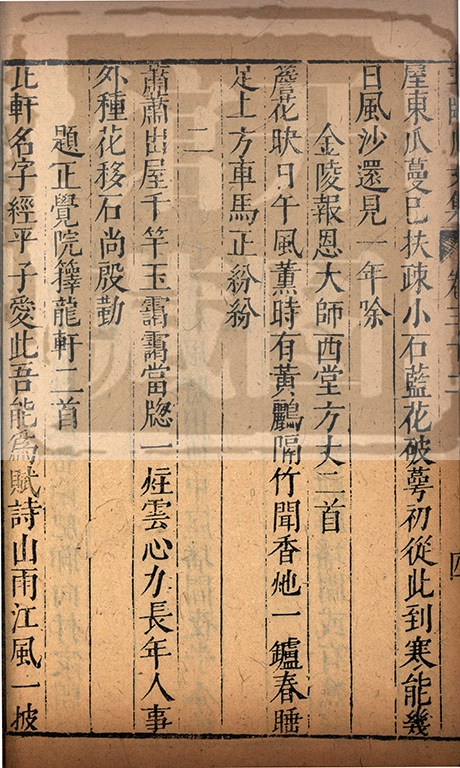 屋東瓜蔓已扶疎小石藍花破萼初從此到寒能幾
日風沙還見一年除
金陵報恩大師西堂方丈二首
簷花映日午風薰時有黃鸝隔竹聞香灺一鑪春睡
足上方車馬正紛紛
二
蕭蕭出屋千竿玉靄靄當牕一炷雲心力長年人事
外種花移石尚殷勤
題正覺院籜龍軒二首
北軒名字經平子愛此吾能爲賦詩山雨江風一披